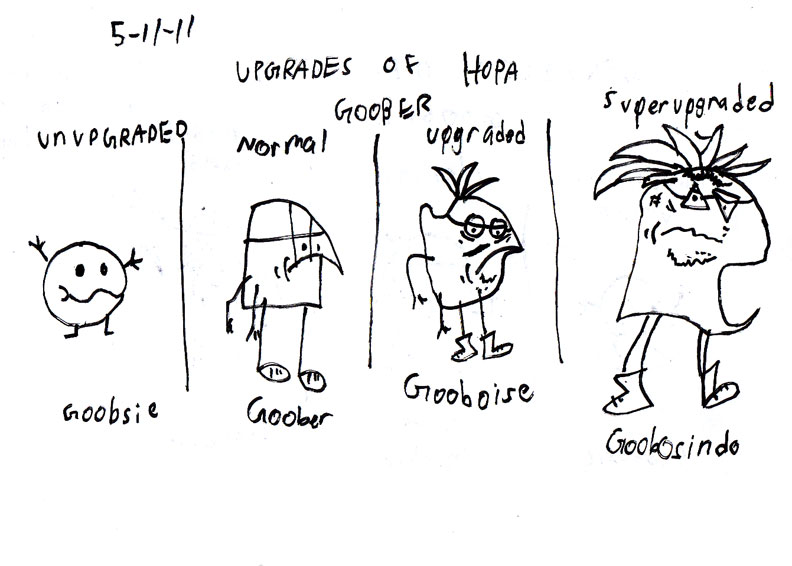 5-11-11
UPGRADES OF HOPA
GOOBER
UNUPGRADED
Normal
upgraded
superupgraded
Goobsie
Goober
Gooboise
Goobosindo